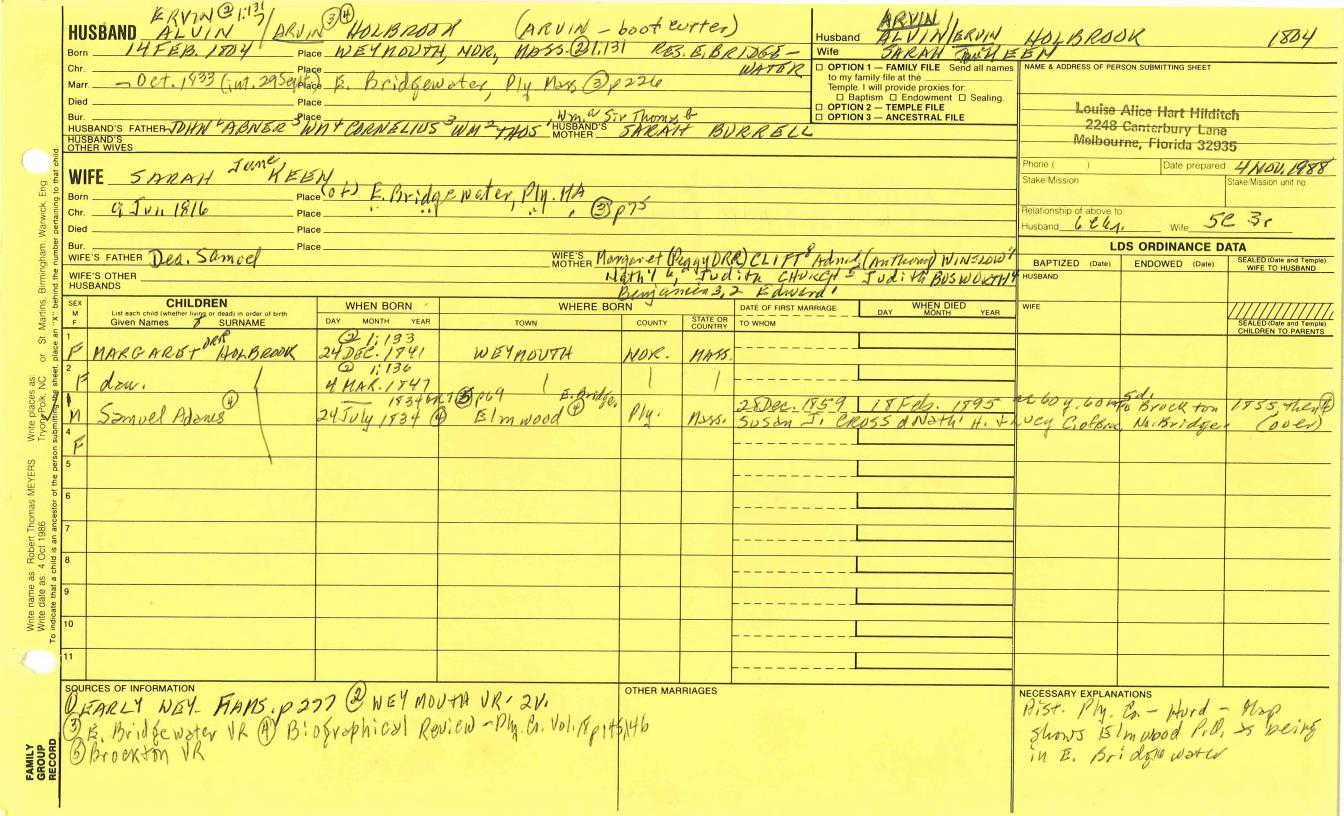 ERVIN ② 1:131
HUSBAND ALVIN / ARVIN ③ ④ HOLBROOK (ARVIN - boot cutter)
Born 14 FEB. 1804 Place WEYMOUTH, NOR, MASS. ② 1:131 RES. E. BRIDGE-
Chr. Place WATER
Marr — Oct. 1933 (int. 29 Sept) Place E. Bridgewater, Ply Mass ③ p226
Died Place
Bur. Place
HUSBAND'S FATHER JOHN ABNER WM CORNELIUS WM THOS. HUSBAND'S MOTHER SARAH BURRELL
HUSBAND'S OTHER WIVES
ARVIN
Husband ALVIN/ERVIN HOLBROOK 1804
Wife SARAH Jane KEEN
☐ OPTION 1 — FAMILY FILE Send all names
to my family file at the
Temple. I will provide proxies for:
☐ Baptism ☐ Endowment ☐ Sealing.
☐ OPTION 2 — TEMPLE FILE
☐ OPTION 3 — ANCESTRAL FILE
NAME & ADDRESS OF PERSON SUBMITTING SHEET
Louise Alice Hart Hilditch
2248 Canterbury Lane
Melbourne, Florida 32935
Phone ( ) Date prepared 4 NOV. 1988
Stake/Mission Stake/Mission unit no.
Relationship of above to
Husband Wife 5C 3r
WIFE SARAH Jane KEEN
Born Place (of) E. Bridgewater, Ply. MA
Chr. 9 Jun 1816 Place " " " ③ p75
Died Place
Bur. Place
WIFE'S FATHER Dea. Samuel WIFE'S MOTHER Margaret (Peggy ORR) CLIFT WINSLOW
WIFE'S OTHER HUSBANDS Nath'l 6, Judith CHURCH Judith BOSWORTH
Benjamin 3, 2 Edward 1
LDS ORDINANCE DATA
BAPTIZED (Date) ENDOWED (Date) SEALED (Date and Temple) WIFE TO HUSBAND
HUSBAND
WIFE
SEALED (Date and Temple) CHILDREN TO PARENTS
SEX M F
CHILDREN
List each child (whether living or dead) in order of birth
Given Names SURNAME
WHEN BORN
DAY MONTH YEAR
WHERE BORN
TOWN COUNTY STATE OR COUNTRY
DATE OF FIRST MARRIAGE
TO WHOM
WHEN DIED
DAY MONTH YEAR
1 ② 1:133
F MARGARET ORR HOLBROOK 24 DEC. 1841 WEYMOUTH NOR. MASS.
2 ② 1:136
F dau. 4 MAR. 1847
1834 ⑤ p69 E. Bridge. 28 Dec. 1859 18 Feb. 1895
M Samuel Adams ④ 24 July 1834 ④ Elmwood ④ Ply. Mass. Susan J. CROSS d Nath'l H. + Lucy
to Brockton 1855, then (over)
4 F
5
6
7
8
9
10
11
SOURCES OF INFORMATION
① EARLY WEY. FAMS. p277 ② WEYMOUTH VR. 2V.
③ E. Bridgewater VR ④ Biographical Review - Ply. Co. Vol. 18 p145,146
⑤ Brockton VR
OTHER MARRIAGES
NECESSARY EXPLANATIONS
Hist. Ply. Co. - Hurd - Map
shows Elmwood P.O. as being
in E. Bridgewater
FAMILY GROUP RECORD
Write name as: Robert Thomas MEYERS Write places as: Tryon, Polk, NC or St Martins, Birmingham, Warwick, Eng
Write date as: 4 Oct 1986
To indicate that a child is an ancestor of the person submitting the sheet, place an "X" behind the number pertaining to that child.